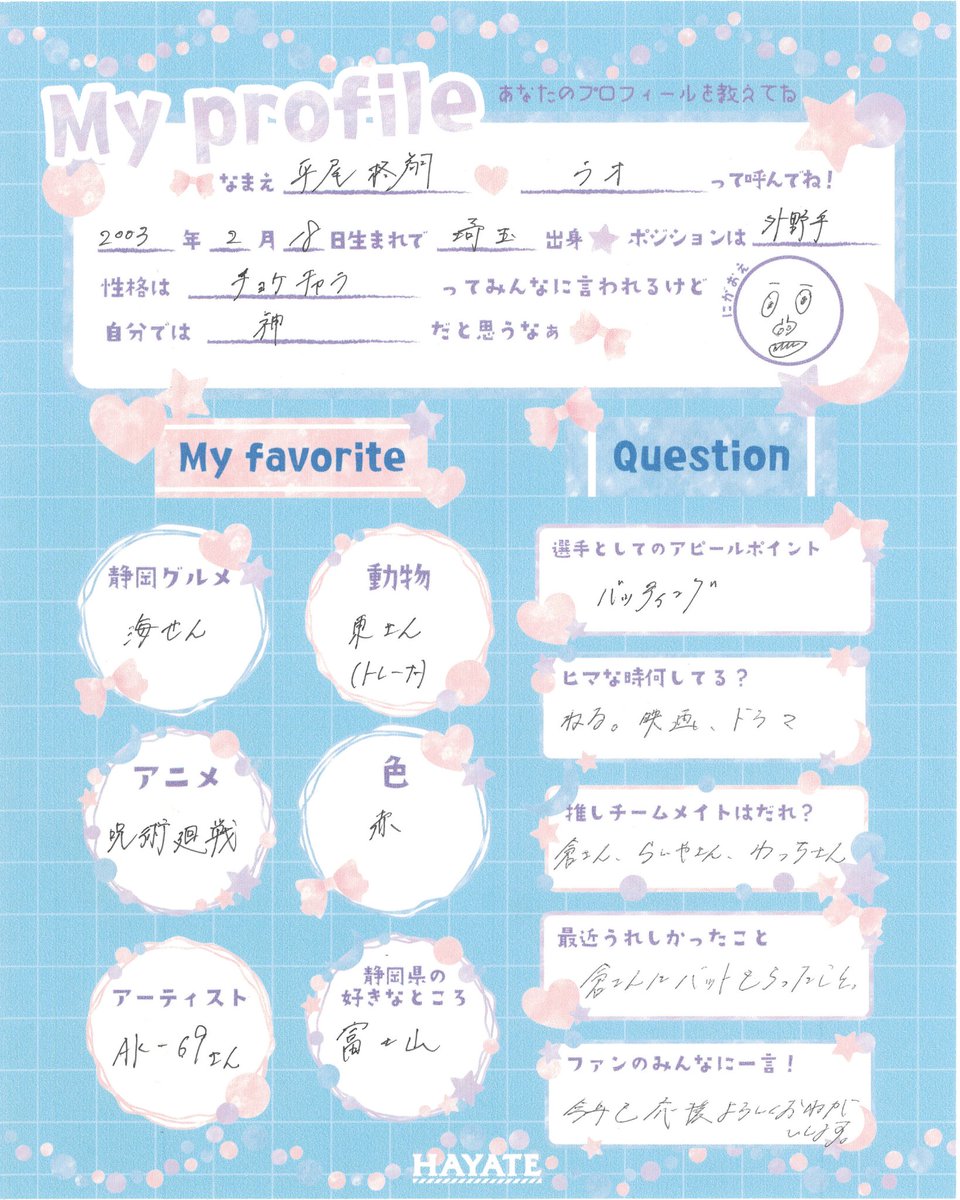 My profile あなたのプロフィールを教えてね
なまえ 平尾柊翔 ラオ って呼んでね!
2003 年 2 月 18 日生まれで 埼玉 出身 ポジションは 外野手
性格は チョケキャラ ってみんなに言われるけど
にがおえ
自分では 神 だと思うなぁ
My favorite
静岡グルメ
海せん
動物
東さん
(トレーナー)
アニメ
呪術廻戦
色
赤
アーティスト
AK-69さん
静岡県の
好きなところ
富士山
Question
選手としてのアピールポイント
バッティング
ヒマな時何してる?
ねる。映画、ドラマ
推しチームメイトはだれ?
倉さん、らいやさん、わっちさん
最近うれしかったこと
倉さんにバットもらったこと。
ファンのみんなに一言!
今年も応援よろしくおねが
いします。
HAYATE